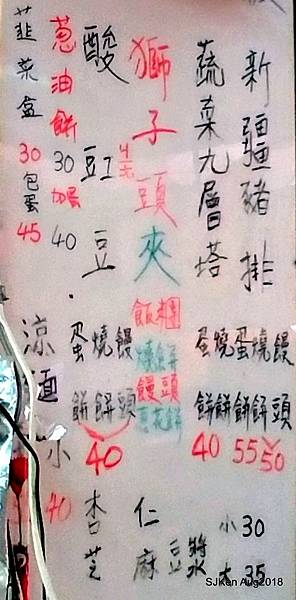 新疆豬排
蛋餅 燒餅 饅頭
55 50
蔬菜九層塔
蛋餅 燒餅
40
獅子頭夾
飯糰
燒餅
饅頭
蔥花餅
酸豇豆
蛋餅 燒餅 饅頭
40
蔥油餅 30 加蛋 40
韭菜盒 30 包蛋 45
涼麵
小 40
杏仁
芝麻
豆漿
小30
大35
SJKen Aug2018